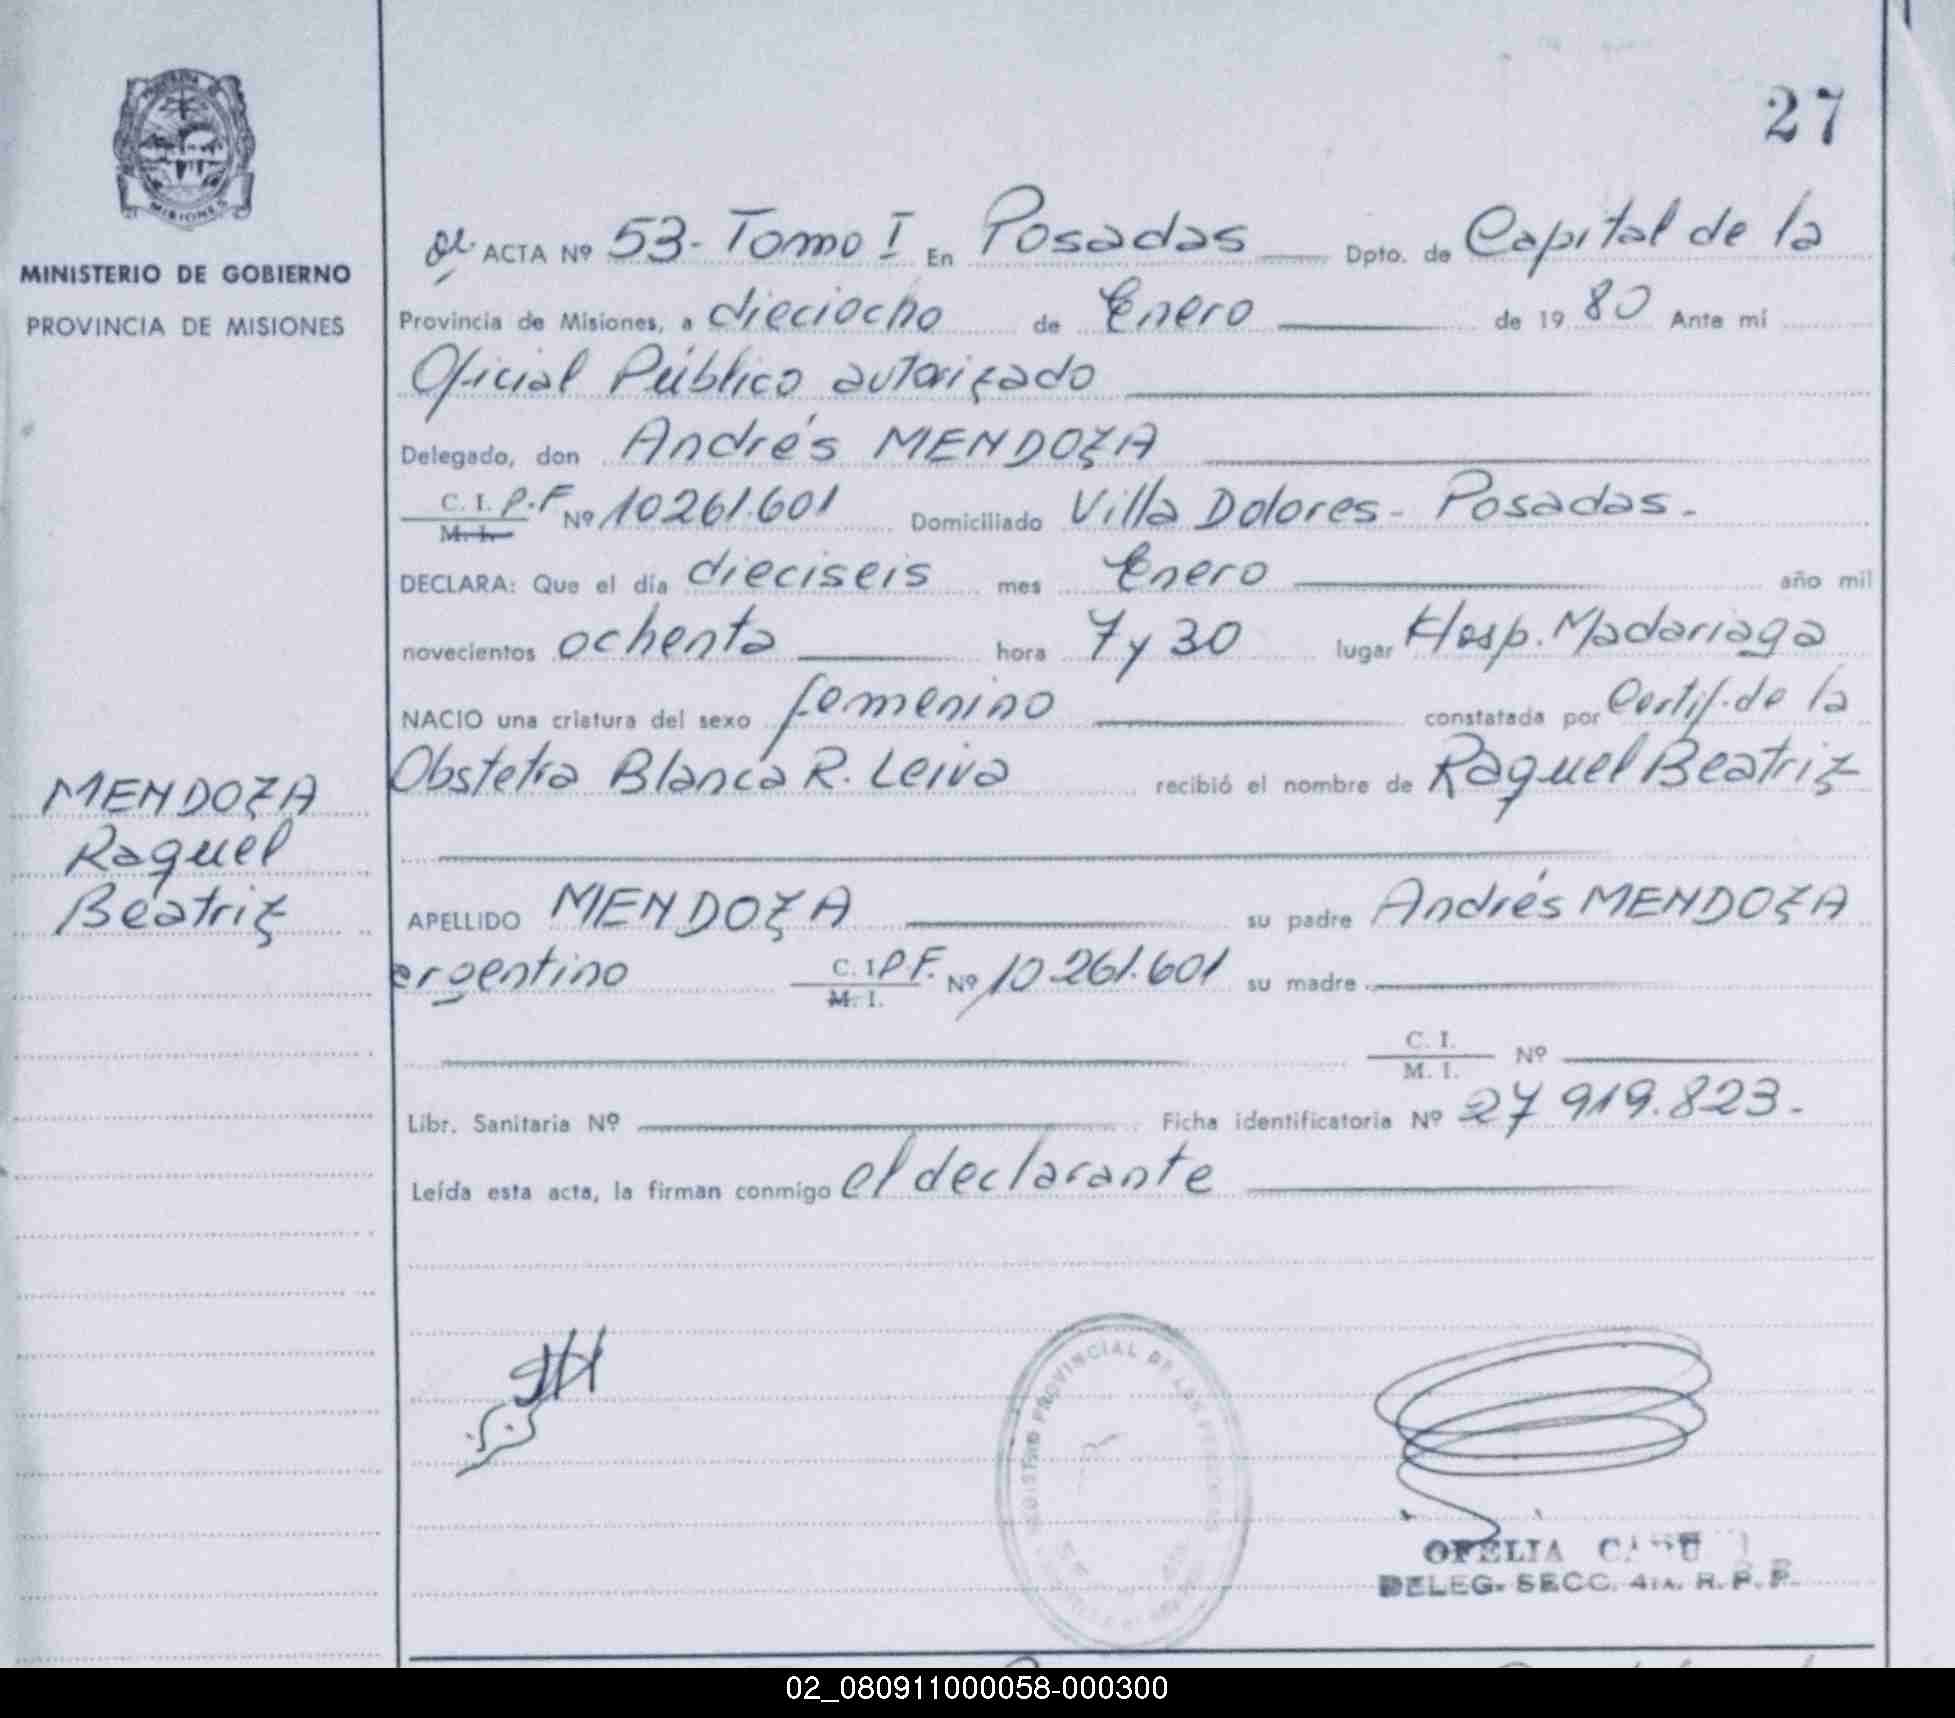 27
MISIONES
MINISTERIO DE GOBIERNO
PROVINCIA DE MISIONES
MENDOZA
Raquel
Beatriz
ACTA Nº 53- Tomo I En Posadas Dpto. de Capital de la
Provincia de Misiones, a dieciocho de Enero de 19 80 Ante mí
Oficial Público autorizado
Delegado, don Andrés MENDOZA
C. I. P.F Nº 10261.601 Domiciliado Villa Dolores - Posadas.
M. I.
DECLARA: Que el día dieciseis mes Enero año mil
novecientos ochenta hora 7 y 30 lugar Hosp. Madariaga
NACIO una criatura del sexo femenino constatada por Certif. de la
Obstetra Blanca R. Leiva recibió el nombre de Raquel Beatriz
APELLIDO MENDOZA su padre Andrés MENDOZA
argentino C. I. P.F. Nº 10.261.601 su madre
M. I.
C. I. Nº
M. I.
Libr. Sanitaria Nº Ficha identificatoria Nº 27 919.823.
Leída esta acta, la firman conmigo el declarante
PROVINCIAL DE LAS PERSONAS
OFELIA
DELEG. SECC. 4ta. R. P. P.
02_080911000058-000300